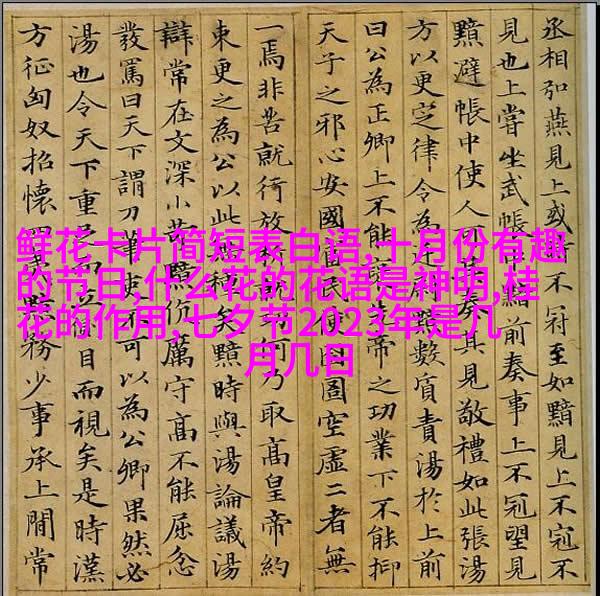 丞相弘燕見上或不冠至如黯見上不冠不
見也上嘗坐武帳黯前奏事上不冠望見
黯避帳中使人可其奏其見敬禮如此張湯
方以更定律令為廷尉黯數質責湯於上前
曰公為正卿上不能帝之功業下不能抑
天子之邪心安國富民使囹圄空虛二者無
一焉非苦就行放何乃取髙皇帝約
束更之為公以此種矣黯時與湯論議湯
辯常在文深小苛黯伉厲守髙不能屈忿
發罵曰天下謂刀筆吏不可以為公卿果然必
湯也令天下重足而立側目而視矣是時漢
方征匈奴招懷四夷黯務少事承上閒常
鲜花卡片简短表白语,十月份有趣
的节日,什么花的花语是神明,桂
花的作用,七夕节2023年是几
月几日